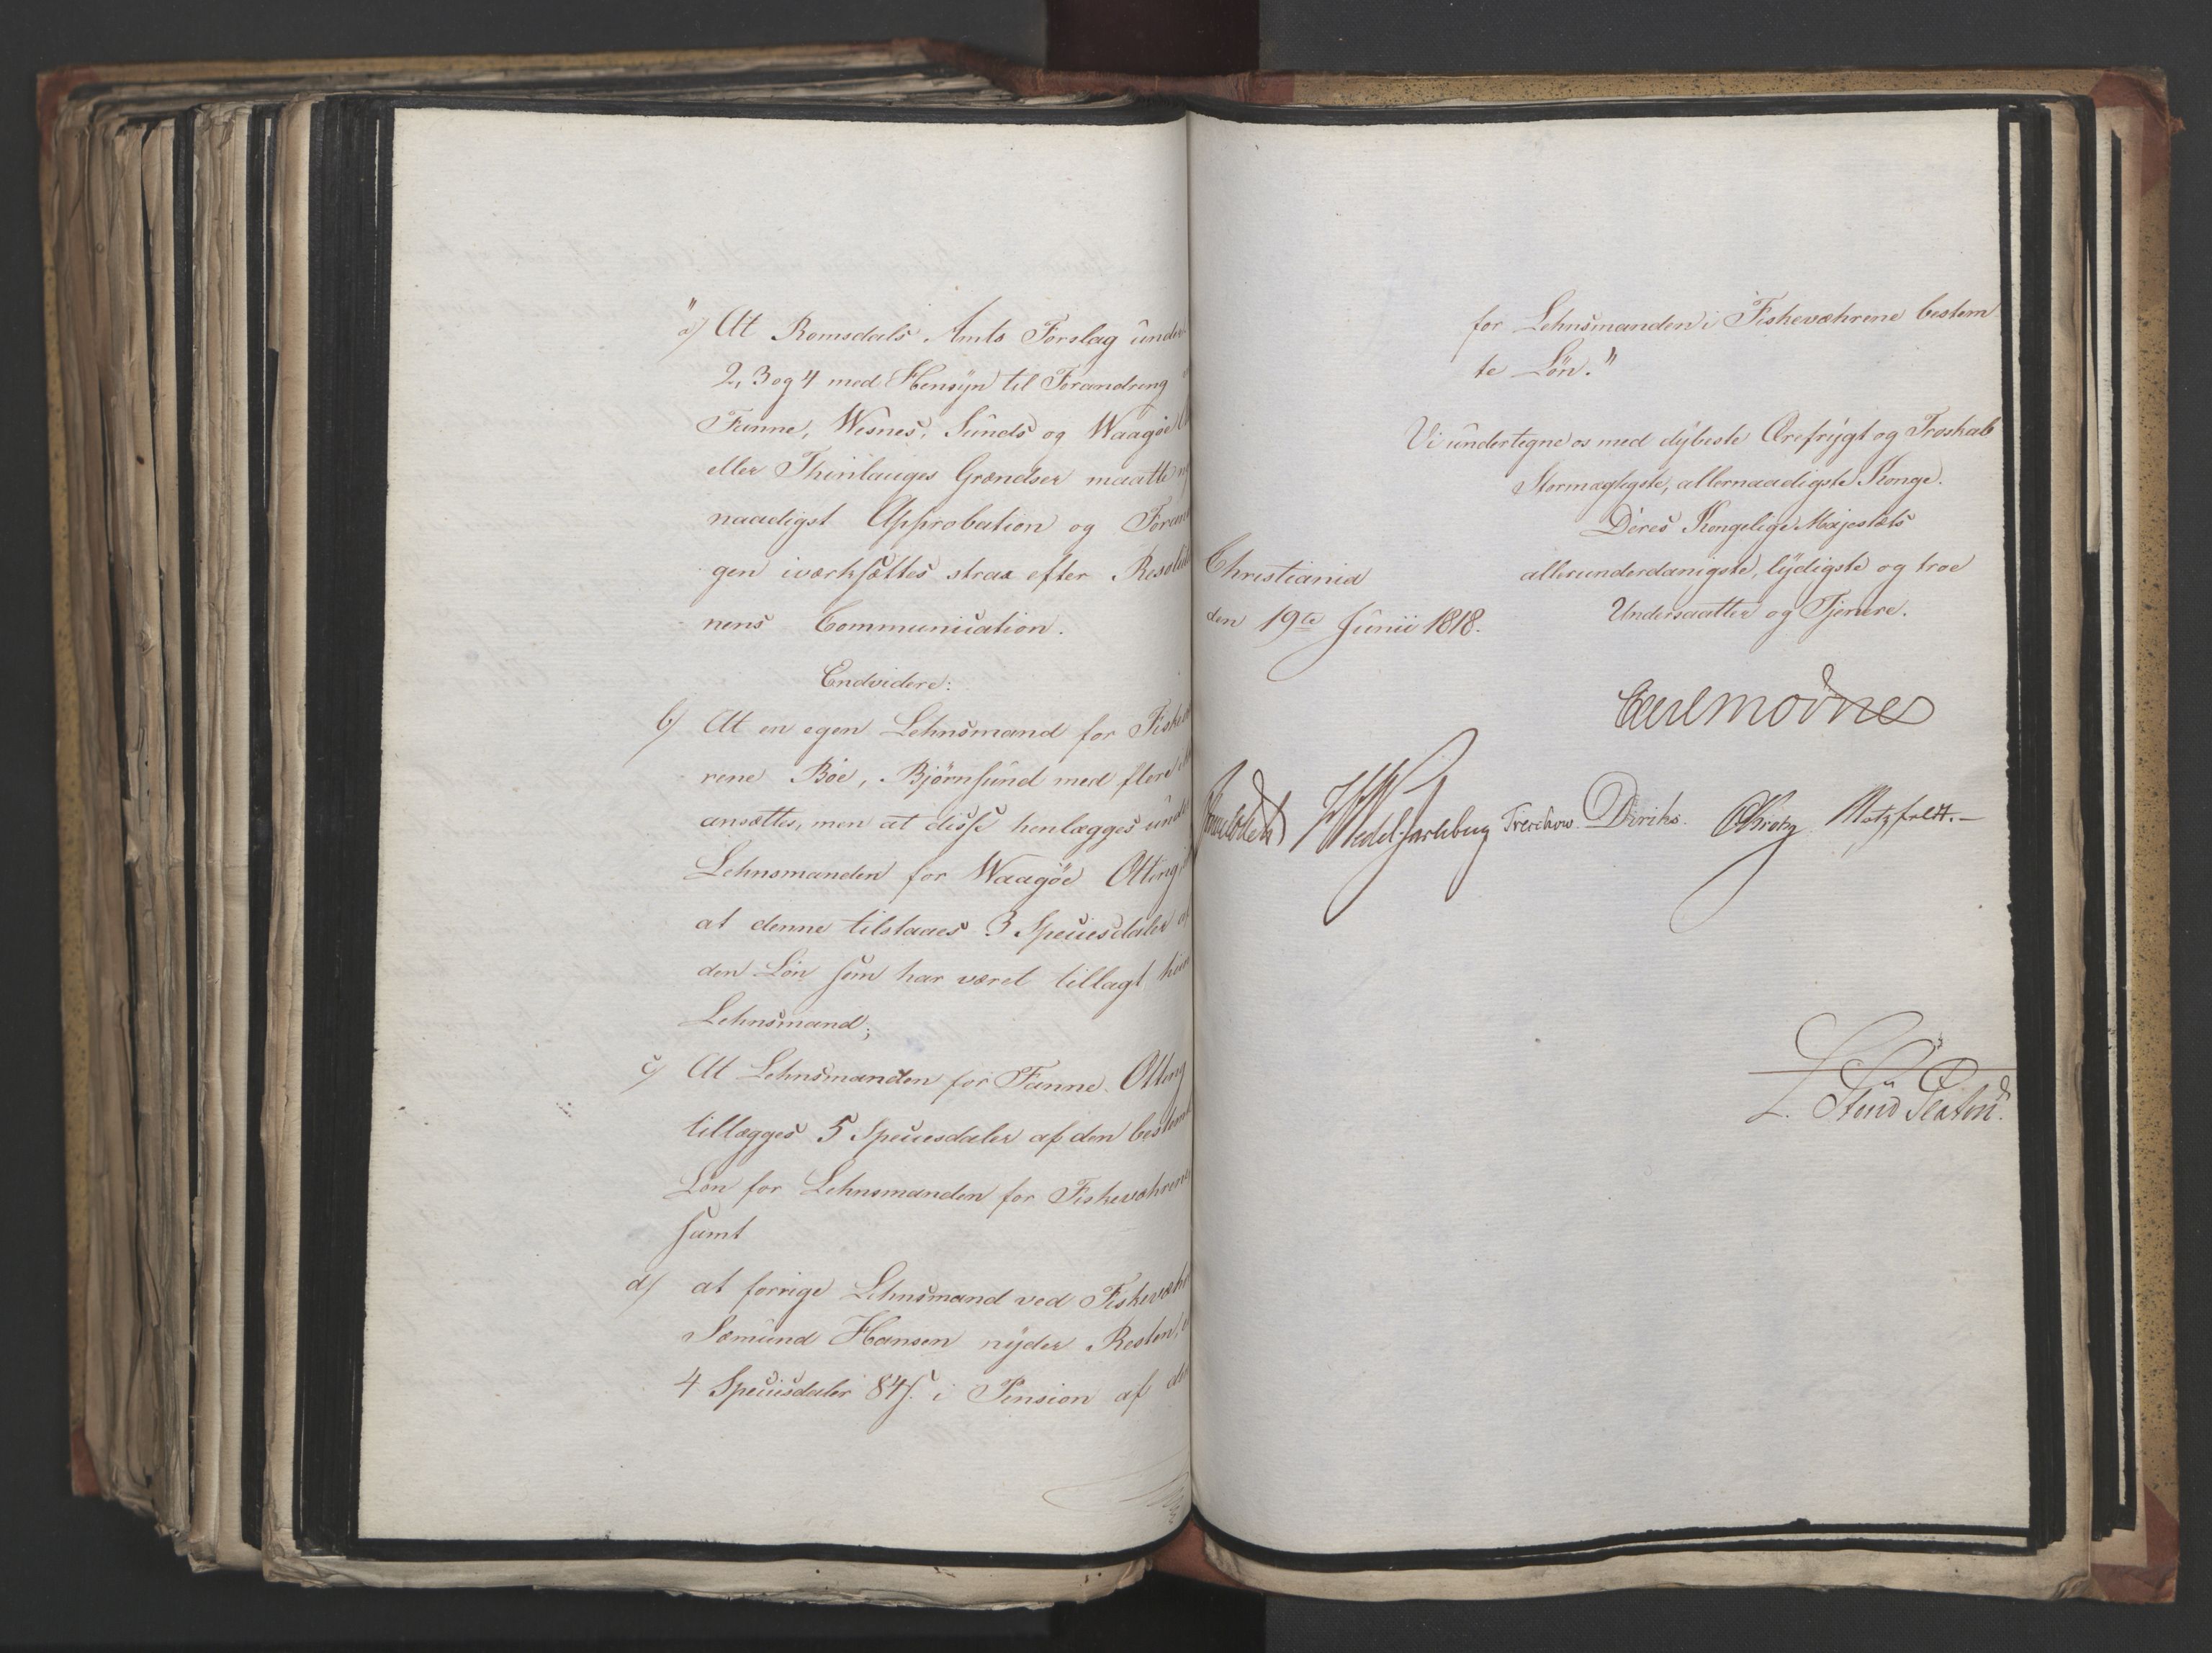 "a) At Romsdals Amts Forslag under
2, 3 og 4 med Hensyn til Forandring
Fanne, Wesnes, Sunds og Waagøe
eller Thinlauges Grændser maatte
naadigst Approbation og Foran
gen iværksættes strax efter Resolut
nens Communication.
Endvidere:
b) At en egen Lehnsmand for Fiskev
rene Böe, Bjørnsund med flere
ansættes, men at disse henlægges under
Lehnsmanden for Waagöe Otting
at denne tilstaaes 3 Speciesdaler af
den Løn som har været tillagt hiin
Lehnsmand;
c) At Lehnsmanden for Fanne Otting
tillægges 5 Speciesdaler af den bestemt
Løn for Lehnsmanden for Fiskevæhrene
samt
d) at forrige Lehnsmand ved Fiskeværh
Sæmund Hansen nyder Resten,
4 Speciesdaler 84 s. i Pension af den
for Lehnsmanden i Fiskevæhrene bestem
te Løn."
Vi undertegne os med dybeste Ærefrygt og Troskab
Stormægtigste, allernaadigste Konge.
Deres Kongelige Majestæts
allerunderdanigste, lydigste og troe
Undersaatter og Tjenere.
Christiania
den 19de Junii 1818.
Carl Mörner
Sommerhielm HWedel Jarlsberg Treschow. Diriks. CKrohg Motzfeldt.
L. Stoud Platou.